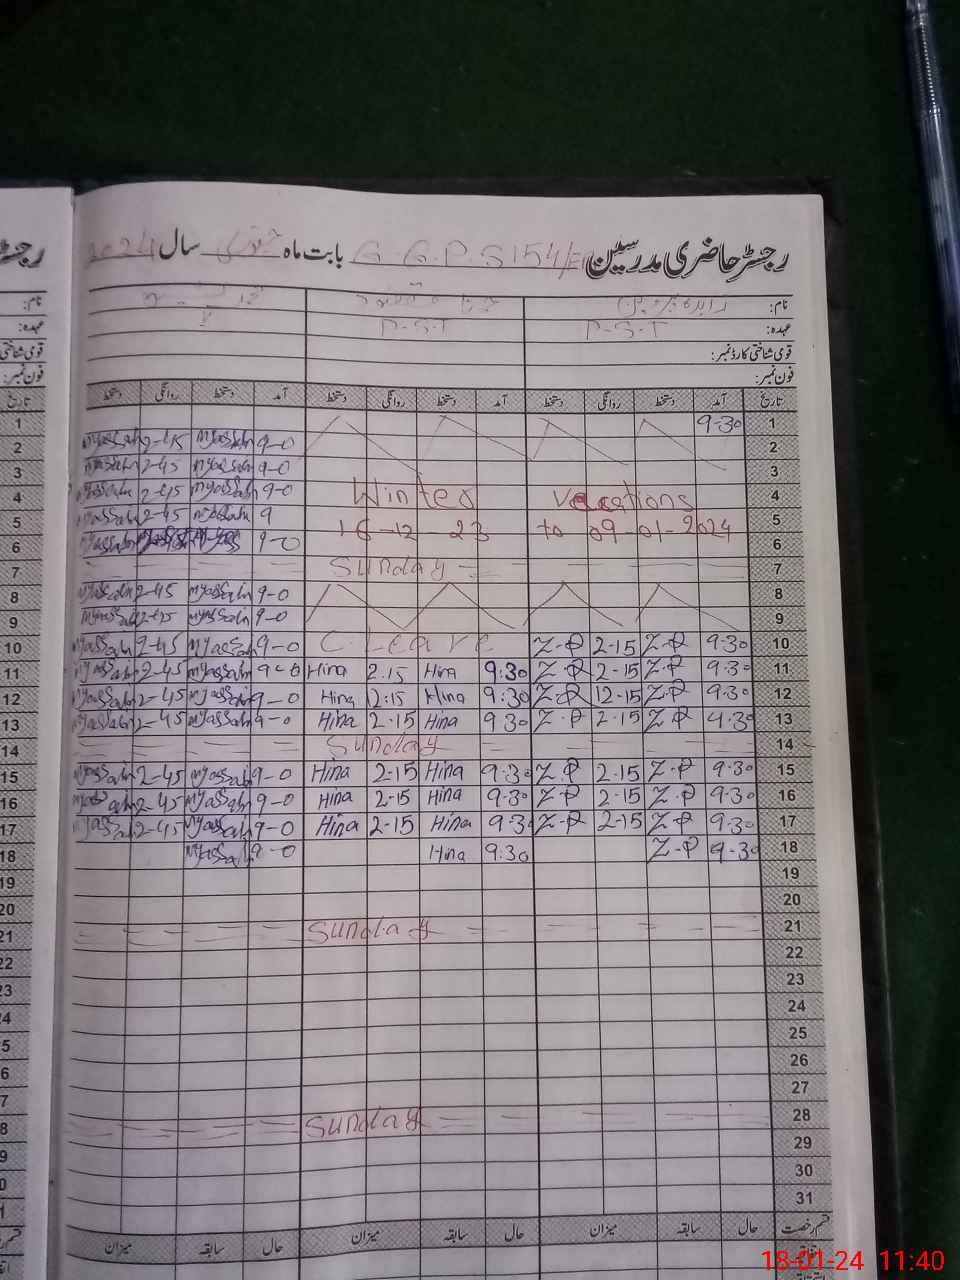 رجسٹر حاضری مدرسین G.G.P.S 154/E بابت ماہ جنوری سال 2024
نام:
عہدہ: P.S.T P.S.T
قومی شناختی کارڈ نمبر:
فون نمبر:
تاریخ آمد دستخط روانگی دستخط آمد دستخط روانگی دستخط آمد دستخط روانگی دستخط
1 9-30
2 9-0 myassabn 2-45 myassabn
3 9-0 myassabn 2-45 myassabn
4 Winter vecations 9-0 myassabn 2-45 myassabn
5 16-12-23 to 09-01-2024 9 myassabn 2-45 myassabn
6 9-0
7 Sunday
8 9-0 myassabn 2-45 myassabn
9 9-0 myassabn 2-45 myassabn
10 9-30 Z-P 2-15 Z-P C.Leave 9-0 myassabn 2-45 myassabn
11 9-30 Z-P 2-15 Z-P 9:30 Hina 2.15 Hina 9-0 myassabn 2-45 myassabn
12 9-30 Z-P 12-15 Z-P 9:30 Hina 12:15 Hina 9-0 myassabn 2-45 myassabn
13 4-30 Z-P 2-15 Z-P 9.30 Hina 2-15 Hina 9-0 myassabn 2-45 myassabn
14 Sunday
15 9-30 Z-P 2-15 Z.P 9-30 Hina 2-15 Hina 9-0 myassabn 2-45 myassabn
16 9-30 Z-P 2-15 Z-P 9-30 Hina 2-15 Hina 9-0 myassabn 2-45 myassabn
17 9-30 Z-P 2-15 Z-P 9-3 Hina 2-15 Hina 9-0 myassabn 2-45 myassabn
18 9-30 Z-P 9:30 Hina 9-0 myassabn
19
20
21 Sunday
22
23
24
25
26
27
28 Sunday
29
30
31
قسم رخصت حال سابقہ میزان حال سابقہ میزان حال سابقہ میزان
18-01-24 11:40